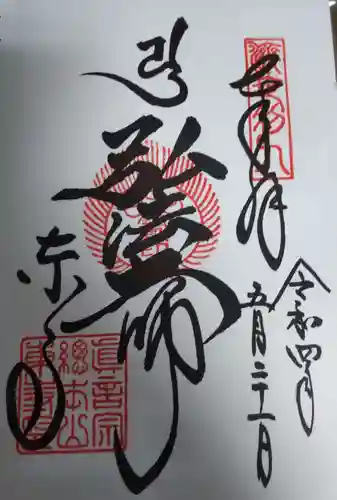 奉拝
令和四年
五月二十一日
弘法大師
東寺
真言宗
總本山